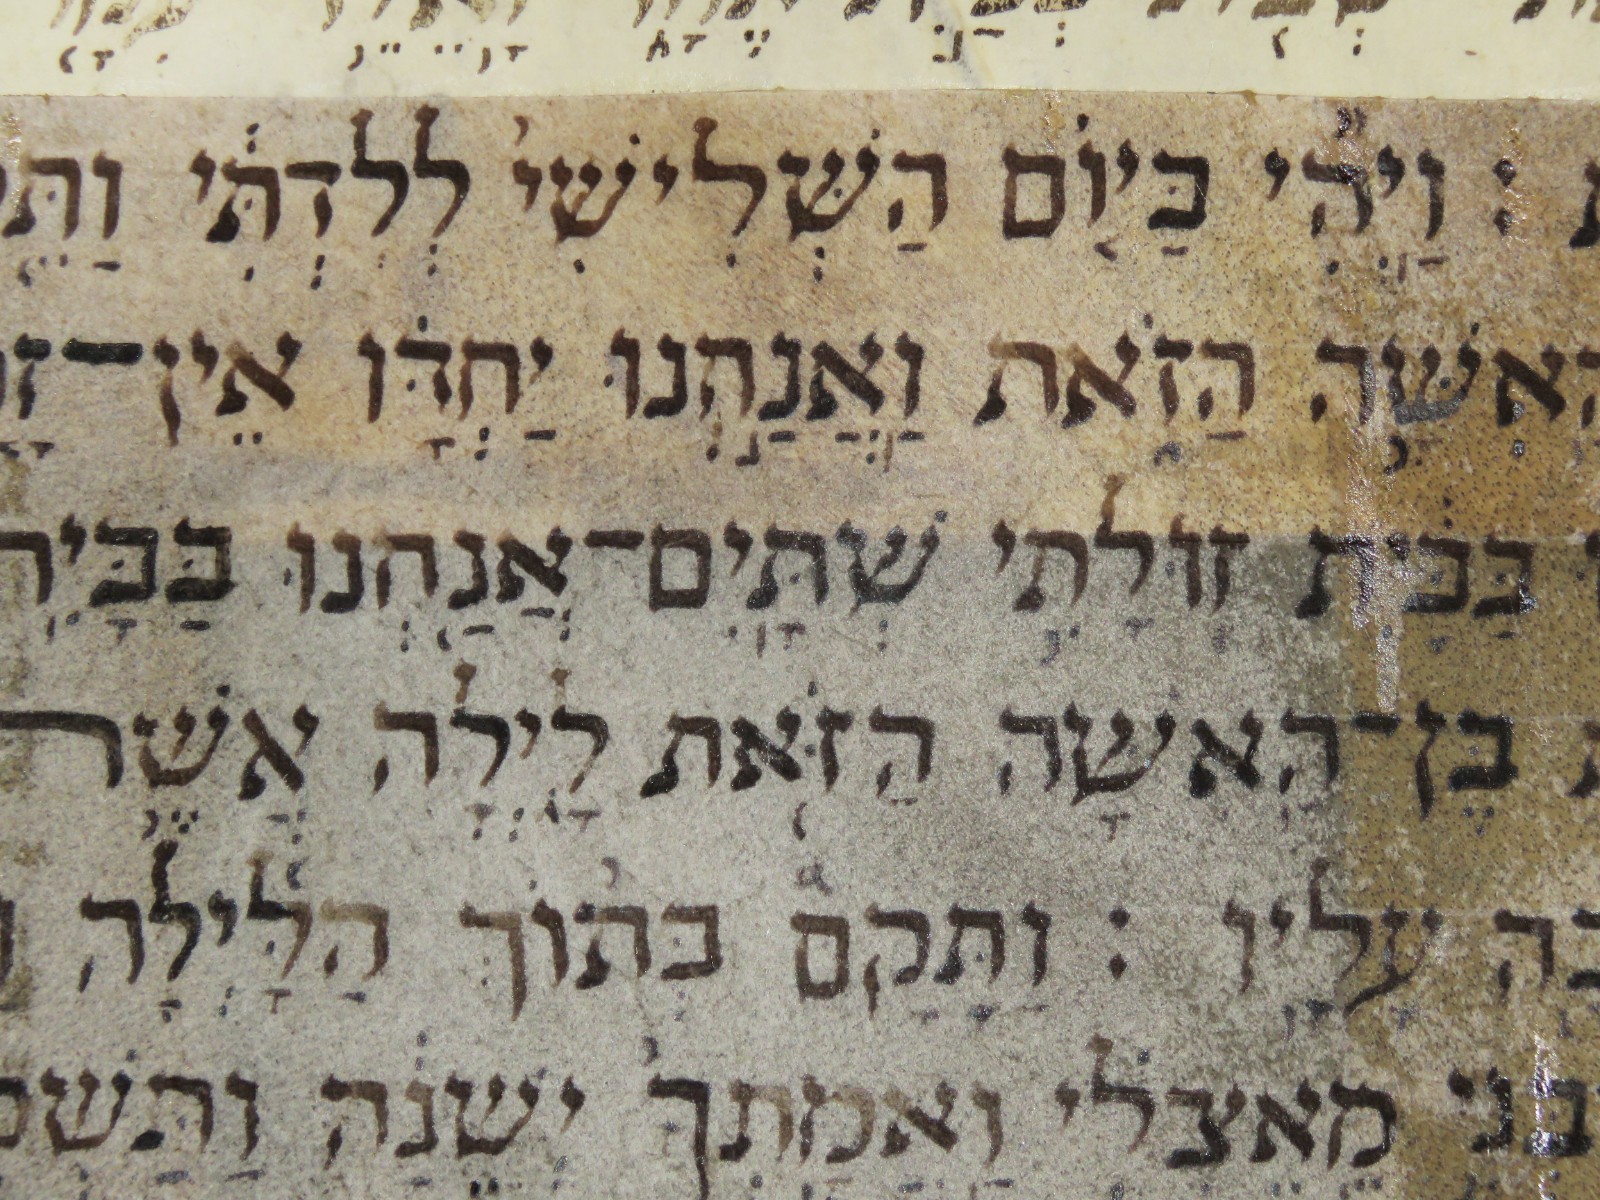 ׃ וַיְהִ֞י בַּיּ֤וֹם הַשְּׁלִישִׁי֙ לְלִדְתִּ֔י
הָאִשָּׁ֣ה הַזֹּ֑את וַאֲנַ֣חְנוּ יַחְדָּ֗ו אֵין־
בַּבַּ֔יִת זוּלָתִ֥י שְׁתַּ֥יִם־אֲנַ֖חְנוּ בַּבָּֽיִת
בֶּן־הָאִשָּׁה הַזֹּ֖את לָ֑יְלָה אֲשֶׁ֥ר
עָלָֽיו ׃ וַתָּקָם֩ בְּת֨וֹךְ הַלַּ֜יְלָה
בְּנִ֣י מֵֽאֶצְלִ֗י וַאֲמָֽתְךָ֙ יְשֵׁנָ֔ה